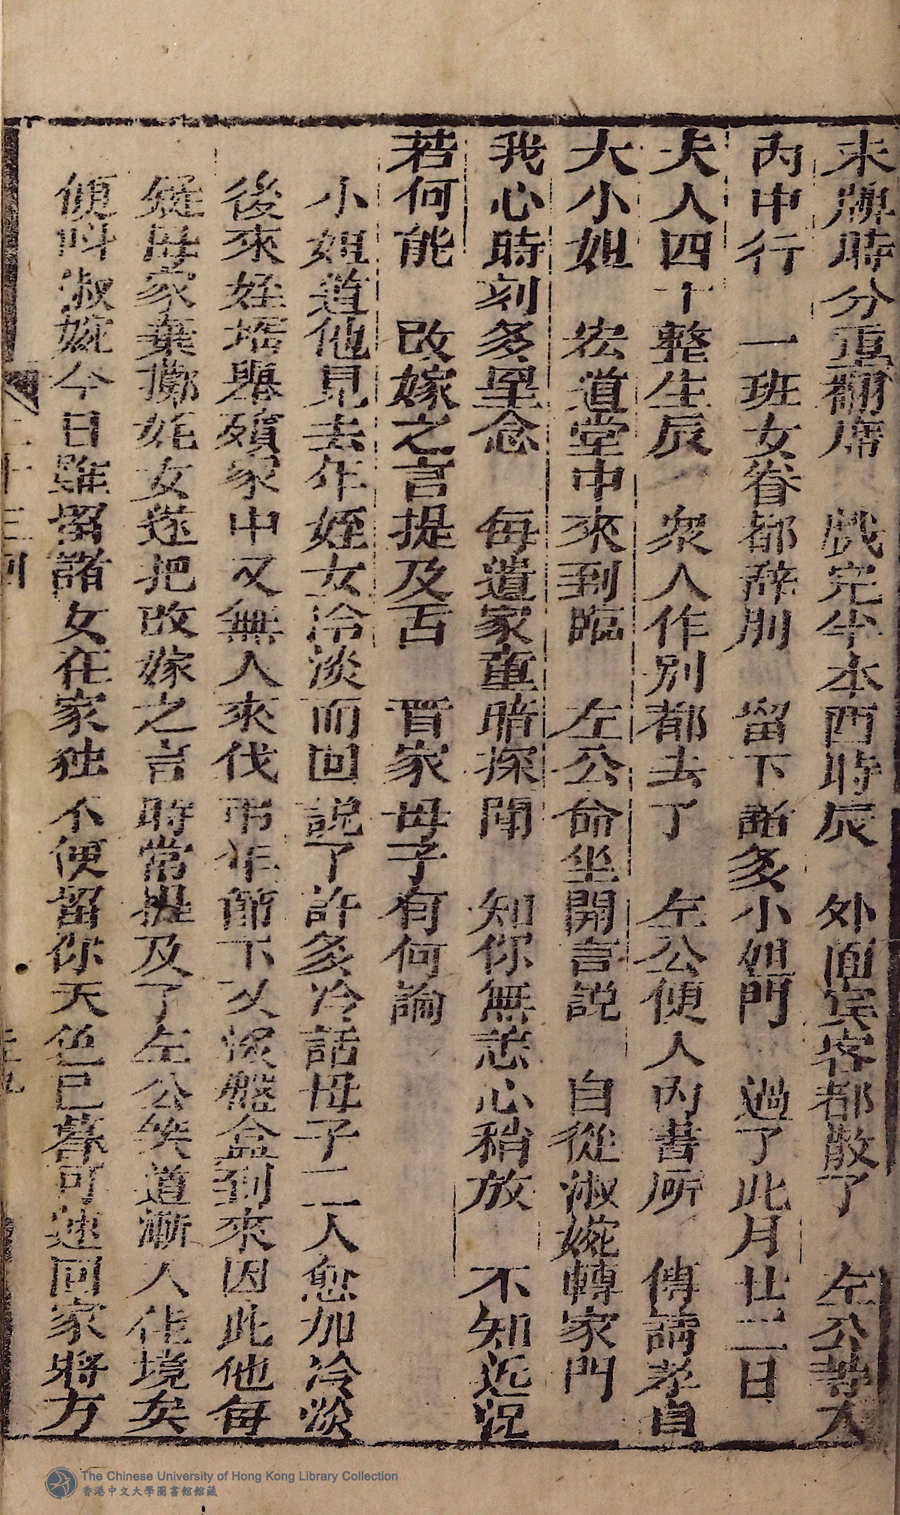 未牌時分重翻席 戲完半本酉時辰 外面宾客都散了 左公等入
內中行 一班女眷都辞別 留下諸多小姐門 過了此月廿二日
夫人四十整生辰 衆人作別都去了 左公便人內書所 傳請孝貞
大小姐 宏道堂中來到臨 左公命坐開言説 自從淑婉轉家門
我心時刻多里念 每遣家童暗探聞 知你無恙心稍放 不知近況
若何能 改嫁之言提及否 晋家母子有何論
小姐道他見去年姪女冷淡而回説了許多冷話母子二人愈加冷淡
後來姪壻舉殯家中又無人來伐弔年節下又沒盤盒到來因此他每
疑母家棄擲姪女遂把改嫁之言時常提及了左公笑道漸入佳境矣
便呌淑婉今日雖留諸女在家独不便留你天色已暮可速回家將方
二十三囘
The Chinese University of Hong Kong Library Collection
香港中文大學圖書館館藏